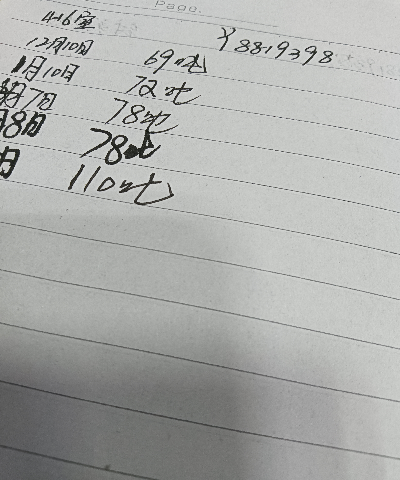 Page.
416室
Y8819398
12月10日 69吨
1月10日 72吨
月7日 78吨
月8日 78吨
月 110吨